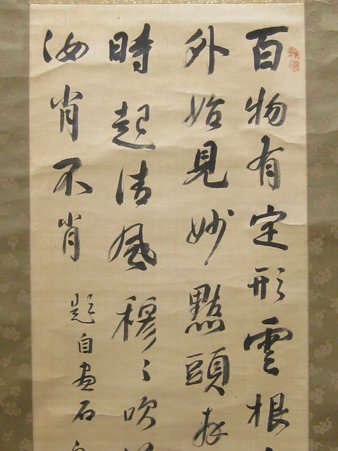 百物有定形雲根
外始見妙點頭
時起清風穆〻吹
汝肖不肖
題自畫石